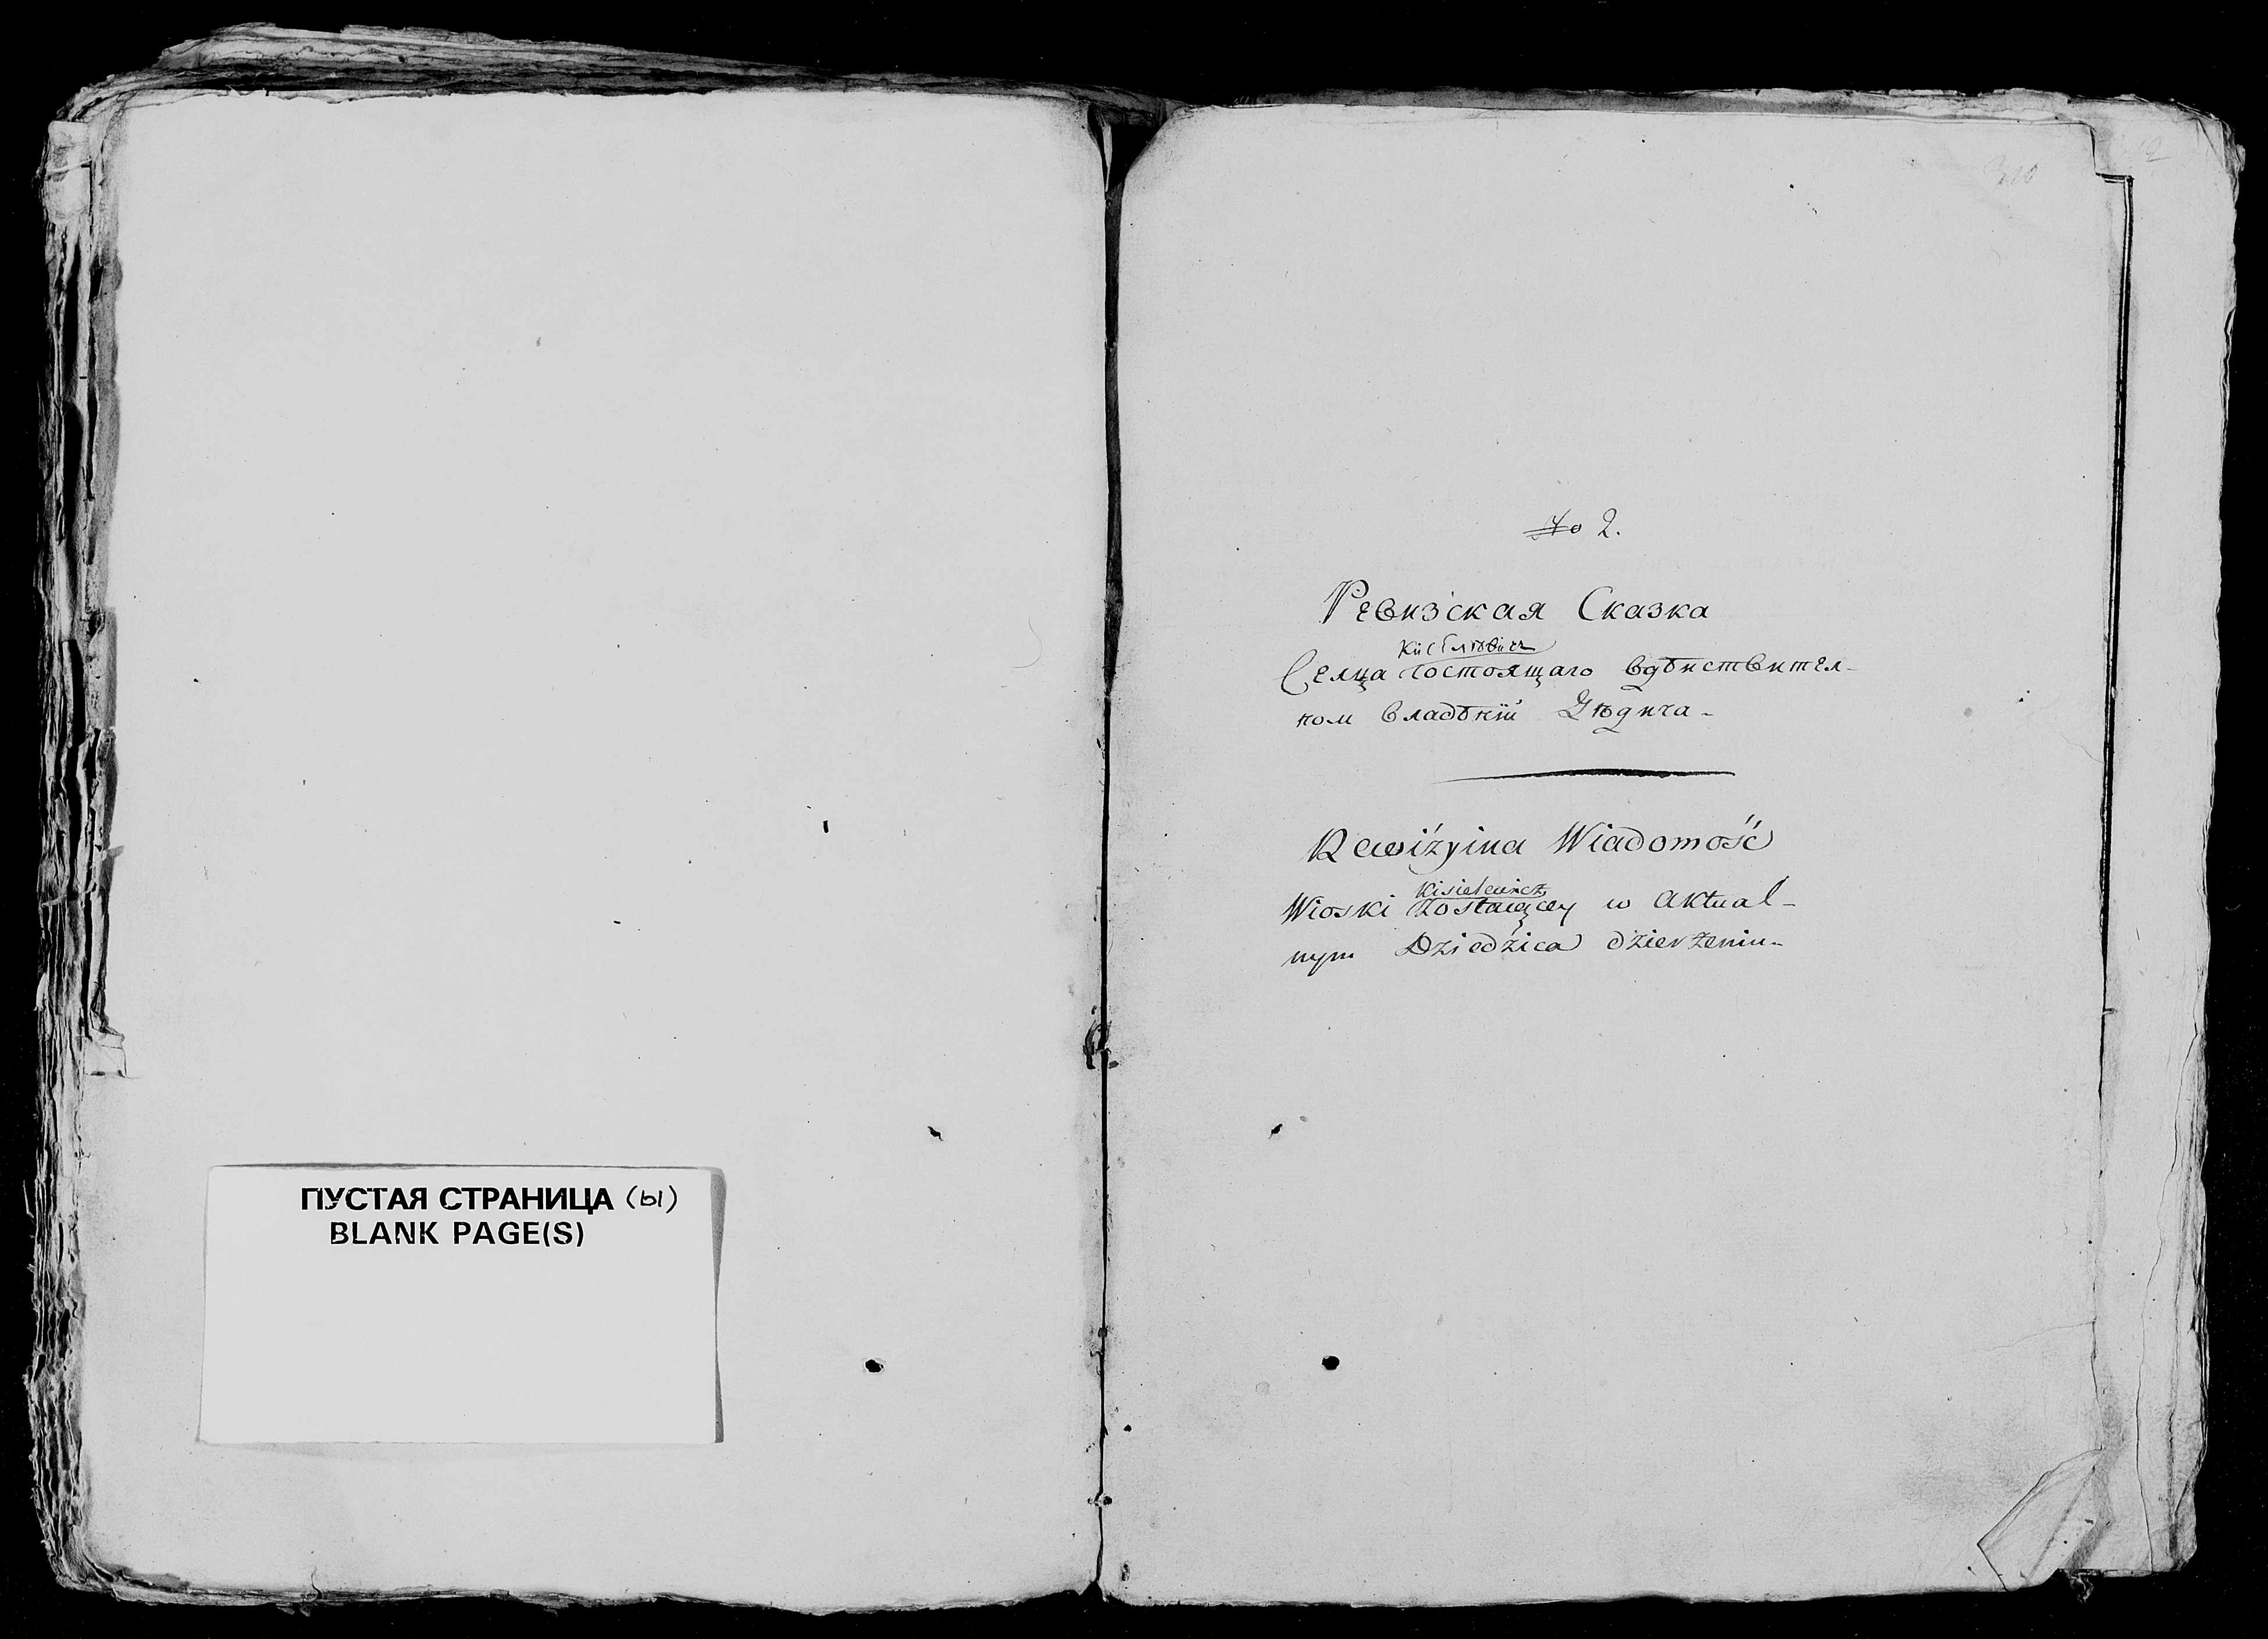 ПУСТАЯ СТРАНИЦА (ы)
BLANK PAGE(S)
№ 2.
Ревизская Сказка
Селца состоящаго вдѣиствител-
ном владѣнїи Дѣдича-
Rewizyina Wiadomość
Kisielewicz
Wioski Zostaiącey w aktual-
nym Dziedzica dzierzeniu-